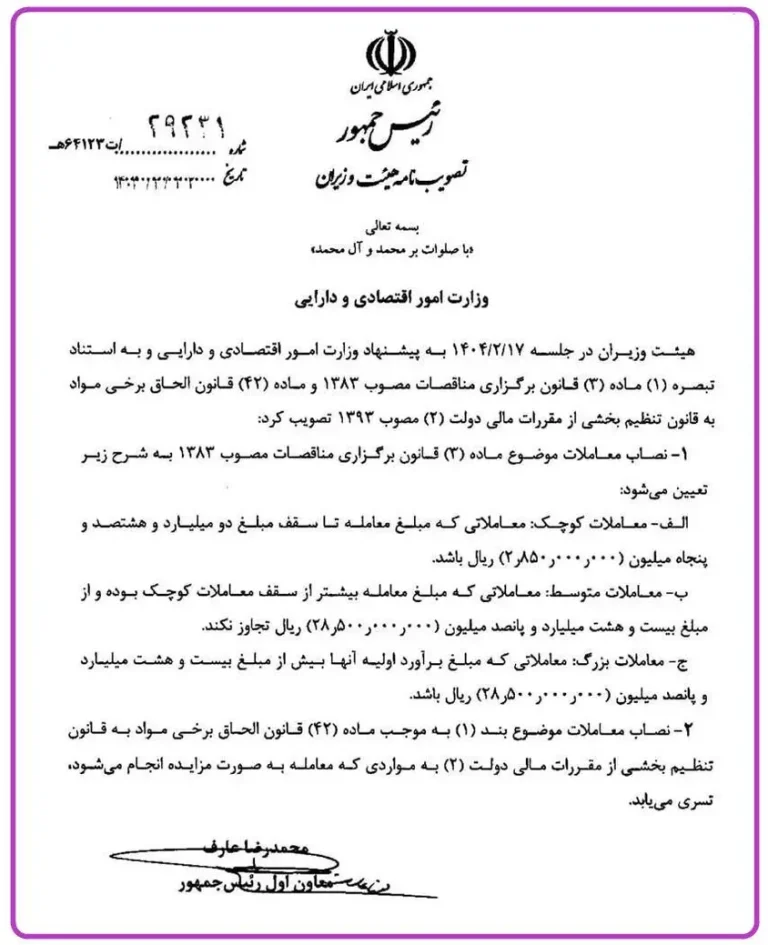 جمهوری اسلامی ایران
رئیس جمهور
تصویب نامه هیئت وزیران
شماره ۲۹۲۳۱/ت۶۴۱۲۳هـ
تاریخ
بسمه تعالی
«با صلوات بر محمد و آل محمد»
وزارت امور اقتصادی و دارایی
هیئت وزیران در جلسه ۱۴۰۴/۲/۱۷ به پیشنهاد وزارت امور اقتصادی و دارایی و به استناد
تبصره (۱) ماده (۳) قانون برگزاری مناقصات مصوب ۱۳۸۳ و ماده (۴۲) قانون الحاق برخی مواد
به قانون تنظیم بخشی از مقررات مالی دولت (۲) مصوب ۱۳۹۳ تصویب کرد:
۱- نصاب معاملات موضوع ماده (۳) قانون برگزاری مناقصات مصوب ۱۳۸۳ به شرح زیر
تعیین می‌شود:
الف- معاملات کوچک: معاملاتی که مبلغ معامله تا سقف مبلغ دو میلیارد و هشتصد و
پنجاه میلیون (۲٫۸۵۰٫۰۰۰٫۰۰۰) ریال باشد.
ب- معاملات متوسط: معاملاتی که مبلغ معامله بیشتر از سقف معاملات کوچک بوده و از
مبلغ بیست و هشت میلیارد و پانصد میلیون (۲۸٫۵۰۰٫۰۰۰٫۰۰۰) ریال تجاوز نکند.
ج- معاملات بزرگ: معاملاتی که مبلغ برآورد اولیه آنها بیش از مبلغ بیست و هشت میلیارد
و پانصد میلیون (۲۸٫۵۰۰٫۰۰۰٫۰۰۰) ریال باشد.
۲- نصاب معاملات موضوع بند (۱) به موجب ماده (۴۲) قانون الحاق برخی مواد به قانون
تنظیم بخشی از مقررات مالی دولت (۲) به مواردی که معامله به صورت مزایده انجام می‌شود،
تسری می‌یابد.
محمدرضا عارف
معاون اول رئیس‌جمهور